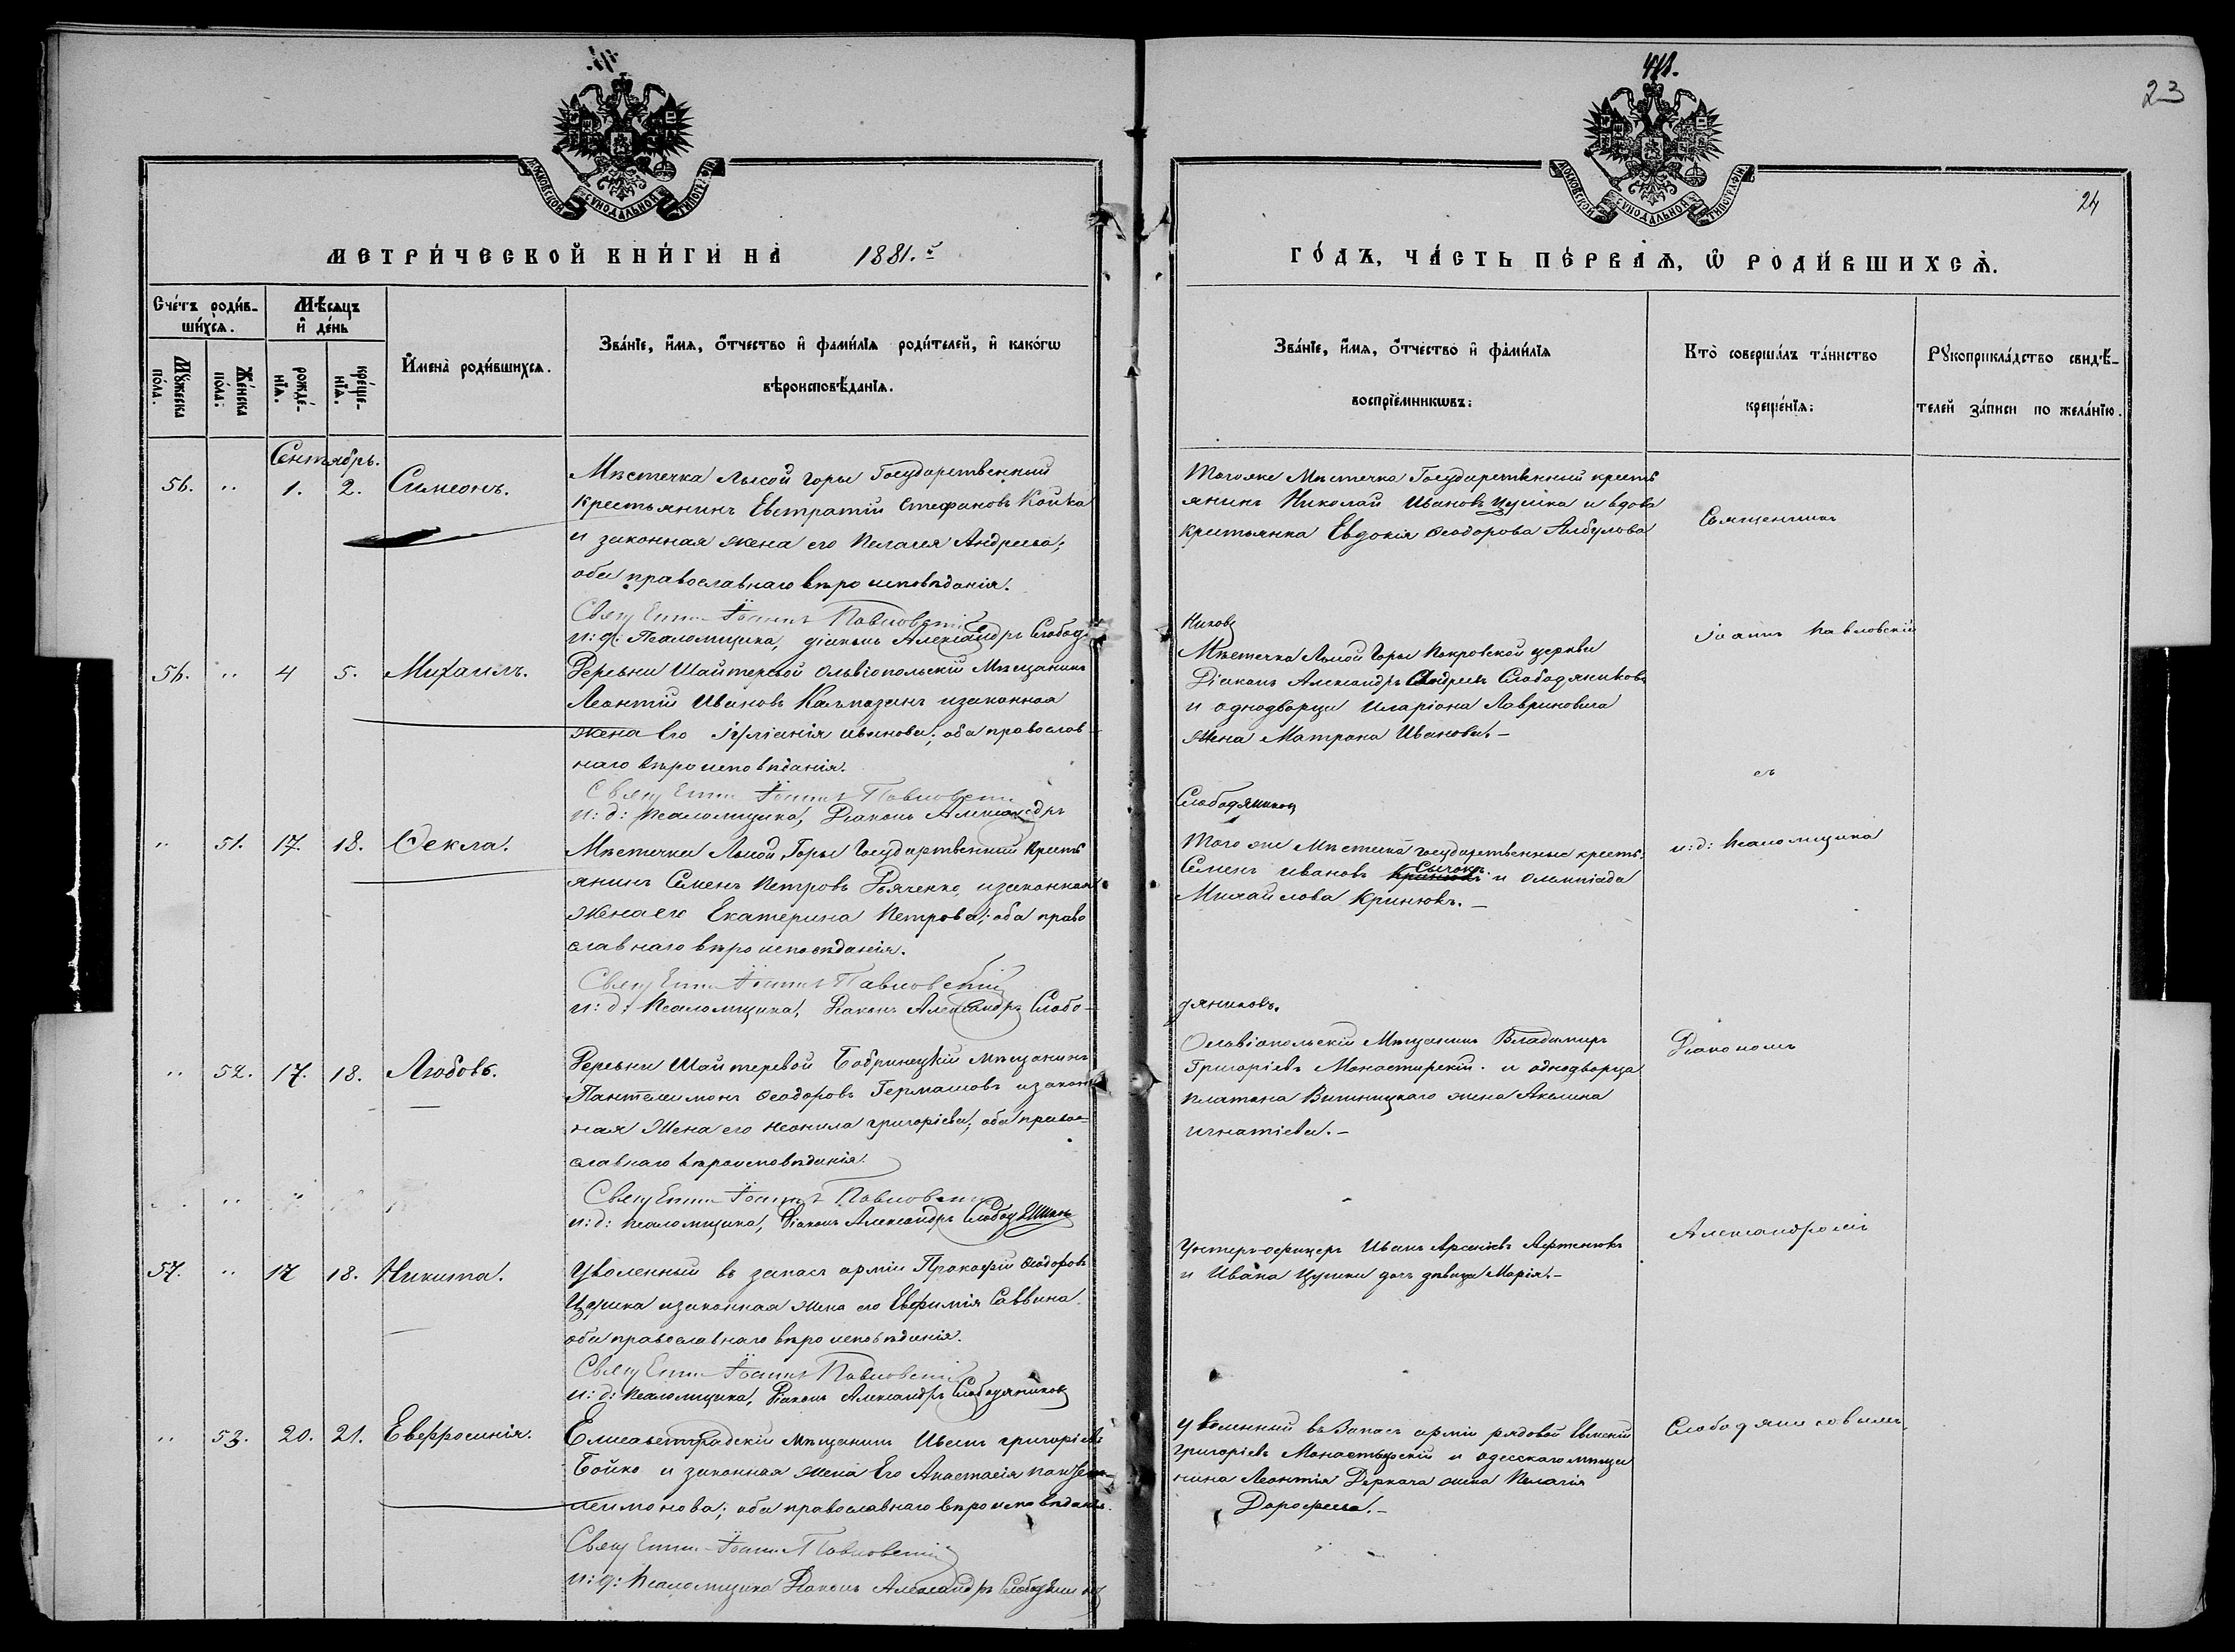 23
24
МОСКОВСКОЙ СѴНОДАЛЬНОЙ ТИПОГРАФІИ
МОСКОВСКОЙ СѴНОДАЛЬНОЙ ТИПОГРАФІИ
МЕТРИ́ЧЕСКОЙ КНИ́ГИ НА̀ 1881.й
ГО́ДЪ, ЧА́СТЬ ПЕ́РВАЯ, Ѡ РОДИ́ВШИХСЯ.
Сче́тъ роди́в-
шихся.
Мужеска по́ла.
Же́нска по́ла:
Мѣ́сяцъ
и де́нь
рожде́-
нія.
креще́-
нія.
Имена̀ роди́вшихся.
Зва́ніе, и́мя, о́тчество и фами́лія роди́телей, и како́гѡ
вѣроисповѣ́данія.
Зва́ніе, и́мя, о́тчество и фами́лія
воспріе́мникѡвъ:
Кто̀ соверша́лъ та́инство
креще́нія:
Рукоприкла́дство свидѣ́-
телей за́писи по жела́нію.
Сентябрь.
56. " 1. 2. Симеонъ.
Мѣстечка Лысой Горы Государственный
крестьянинъ Евстратій Стефановъ Койка
и законная жена его Пелагея Андреева;
оба православнаго вѣроисповѣданія.
Іоаннъ Павловскій
и: д: Псаломщика, діаконъ Александръ Слободя
Тогоже Мѣстечка Государственный кресть
янинъ Николай Ивановъ Цушка и вдова
крестьянка Евдокія Ѳеодорова
Священникъ
никовъ
56. " 4 5. Михаилъ.
Деревни Шайтерской Ольвіопольскій Мѣщанинъ
Леонтій Ивановъ изаконная
жена его Іуліанія Иванова; оба православ
наго вѣроисповѣданія.
Іоаннъ Павловскій
и: д: Псаломщика, Діаконъ Александръ
Мѣстечка Лысой Горы Покровской церкви
Діаконъ Александръ Андреевъ Слободяниковъ
и однодворца Иларіона Лавриновича
жена Матрона Иванова.–
Іоаннъ Павловскій
съ
Слободяниковъ
" 51. 17. 18. Ѳекла.
Мѣстечка Лысой Горы Государственный кресть
янинъ Семенъ Петровъ Дяченко, изаконная
жена его Екатерина Петрова; оба право
славнаго вѣроисповѣданія.
Іоаннъ Павловскій
и: д: Псаломщика, Діаконъ Александръ Слобо-
Того же Мѣстечка государственные кресть.
Семенъ Ивановъ Сычокъ и Олимпіада
Михайлова Кринюкъ.–
и: д: Псаломщика
дяниковъ.
" 52. 17. 18. Любовь.
Деревни Шайтеревой Бобринецкій мѣщанинъ
Пантелеимонъ Ѳеодоровъ Гермашовъ изакон
ная жена его Неонила Григоріева; оба право-
славнаго вѣроисповѣданія.
Іоаннъ Павловскій
и: д: Псаломщика, Діаконъ Александръ Слободяниковъ
Ольвіопольскій Мѣщанинъ Владимиръ
Григоріевъ Монастирскій и однодворца
Платона Вишницкаго жена Акелина
Игнатіева.–
Діакономъ
57. " 17 18. Никита.
Уволенный въ запасъ арміи Прокофій Ѳеодоровъ
Цушка изаконная жена его Евфимія Саввина.
оба православнаго вѣроисповѣданія.
Іоаннъ Павловскій
и: д: Псаломщика, Діаконъ Александръ Слободяниковъ
Унтеръ-офицеръ Иванъ Арсеніевъ
и Ивана Цушки дочь дѣвица Марія.–
Александромъ
" 53. 20. 21. Евфросинія.
Елисаветградскій мѣщанинъ Иванъ Григоріевъ
Бойко и законная жена Его Анастасія Панте-
леимонова; оба православнаго вѣроисповѣданія.
Іоаннъ Павловскій
и: д: Псаломщика Діаконъ Александръ Слободяниковъ
Уволенный въ Запасъ арміи рядовой Евменій
Григоріевъ Монастырскій и одесскаго мѣща
нина Леонтія Деркача жена Пелагія
Дорофеева.–
Слободяниковымъ